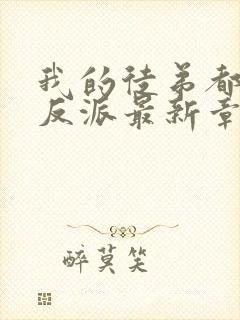 我的徒弟都
反派最新章
醉莫笑